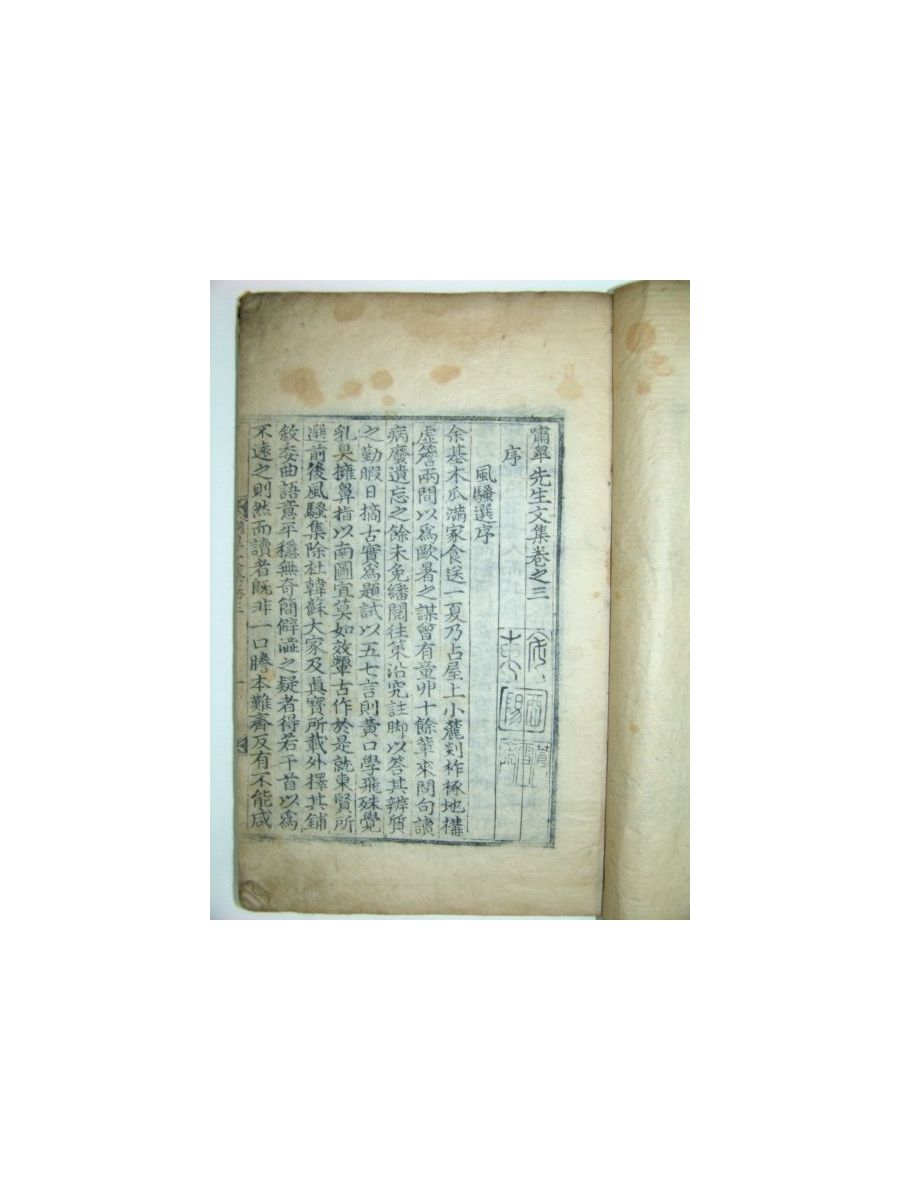 嘯皐先生文集卷之三
序
風騷選序
余基木瓜滿家食送一夏乃占屋上小麓剡柞椓地構
虛簷兩間以爲歐暑之謀曾有童丱十餘輩來問句讀
病廢遺忘之餘未免繙閱往策沿究註脚以答其辨質
之勤暇日摘古實爲題試以五七言則黃口學飛殊覺
乳臭擁鼻指以南圖宜莫如效顰古作於是就東賢所
選前後風騷集除杜韓蘇大家及眞寶所載外擇其鋪
敘委曲語意平穩無奇簡僻澁之疑者得若干首以爲
不遠之則然而讀者旣非一口謄本難齊反有不能咸